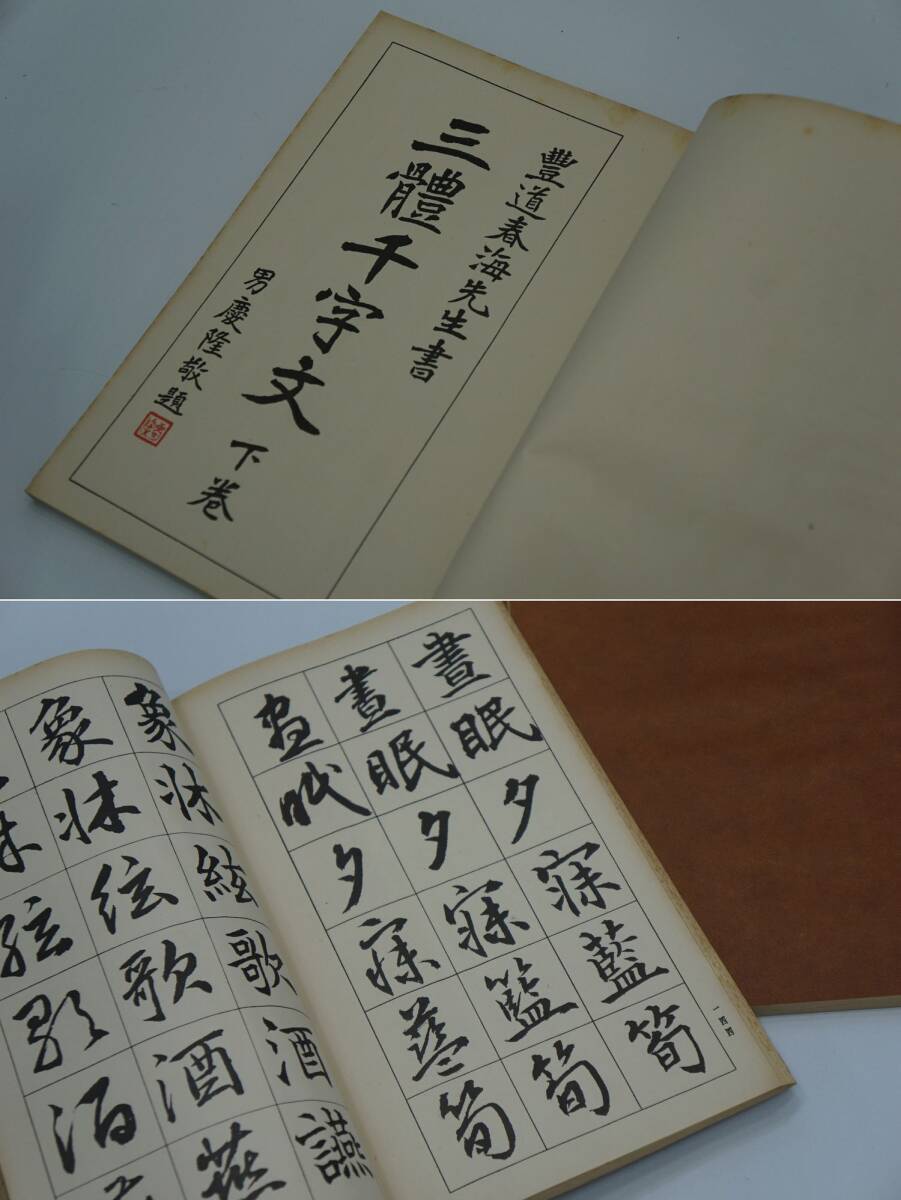 豐道春海先生書
三體千字文 下卷
男慶隆敬題
晝眠夕寐藍筍
晝眠夕寐籃筍
昼眠夕寐藍筍
一四四
象牀絃歌酒讌
象牀絃歌酒燕
牀絃歌酒